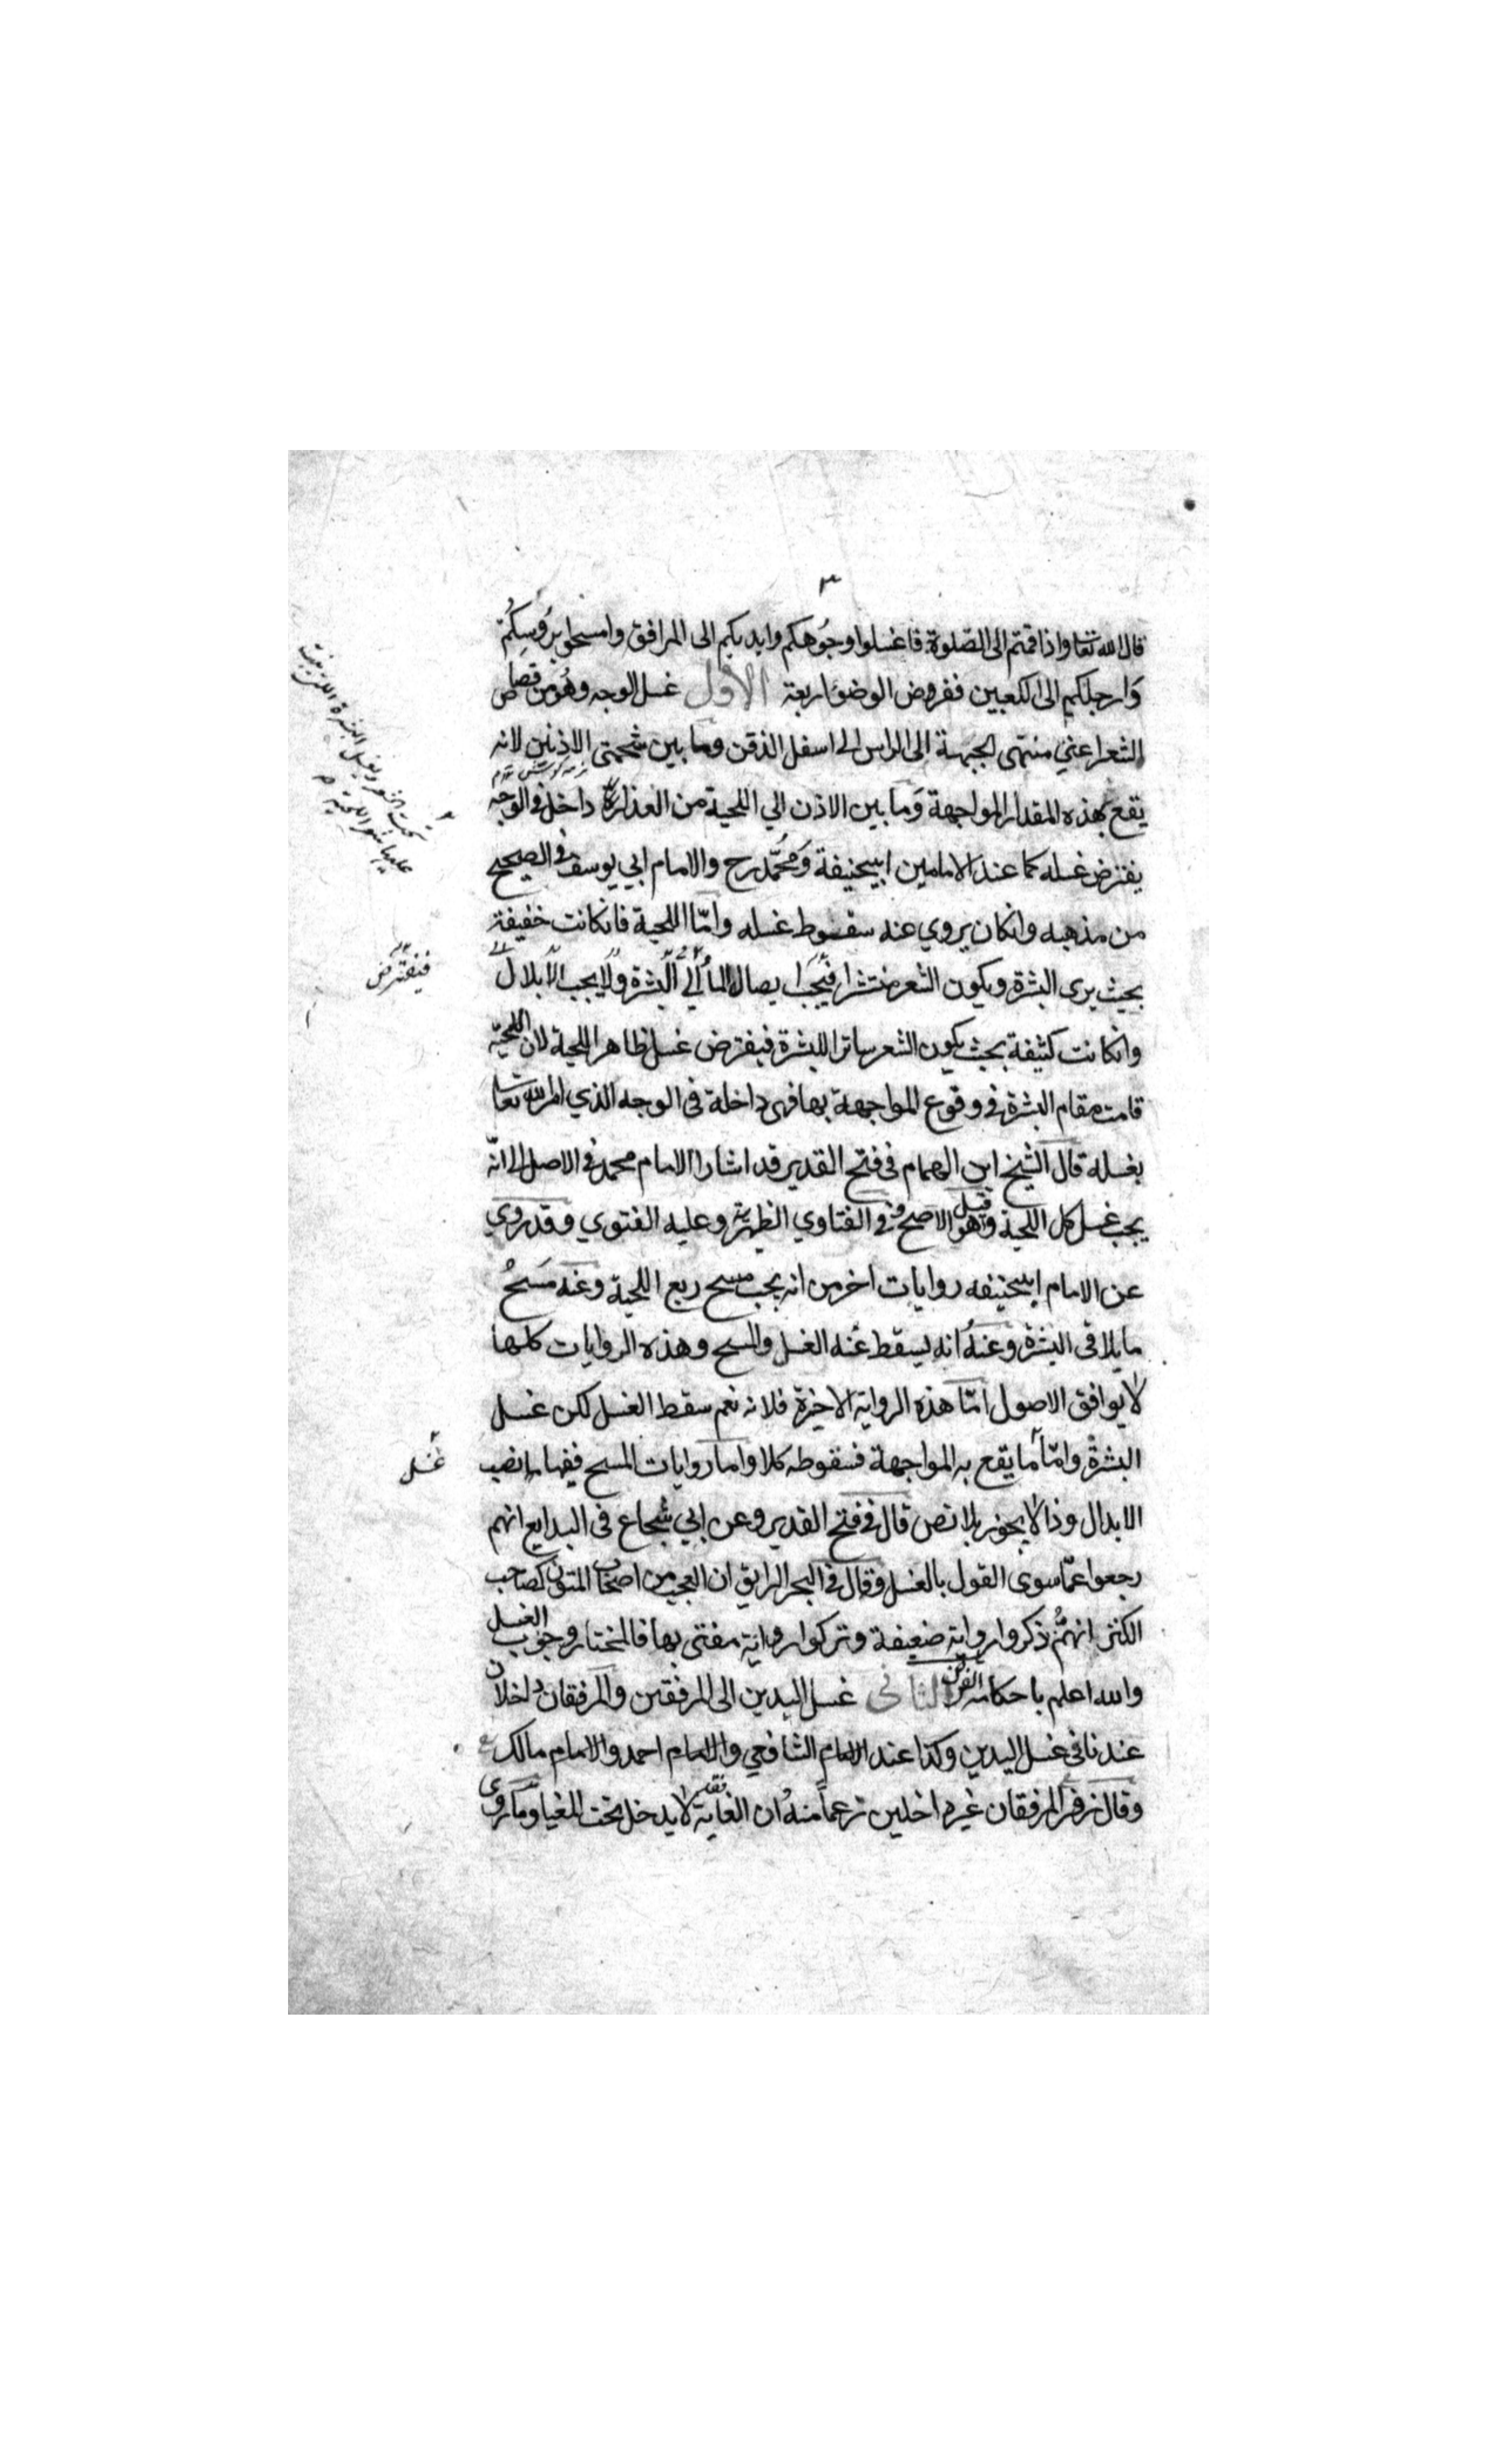 ٣
قال الله تعا واذا قمتم الى الصلوة فاغسلوا وجوهكم وايديكم الى المرافق وامسحوا برؤسكم
وارجلكم الى الكعبين ففروض الوضوء اربعة الاول غسل الوجه وهو من قصاص
الشعر اعني منتهى الجبهة الى الراس الى اسفل الذقن وما بين شحمتى الاذنين لانه
يقع بهذه المقدار المواجهة وما بين الاذن الي اللحية من العذار داخل فى الوجه
يفترض غسله كما عند الامامين ابيحنيفة ومحمد رح والامام ابي يوسف فى الصحيح
من مذهبه وانكان يروي عنه سقوط غسله وامّا اللحية فانكانت خفيفة
بحيث يرى البشرة ويكون الشعر منتشرا فيجب ايصال الماء الى البشرة ولا يجب الابلال
وانكانت كثيفة بحيث يكون الشعر ساترا للبشرة فيفترض غسل ظاهر اللحية لان اللحية
قامت مقام البشرة فى وقوع المواجهة بها فهى داخلة فى الوجه الذي امر الله تعا
بغسله قال الشيخ ابن الهمام فى فتح القدير قد اشار الامام محمد فى الاصل الى انه
يجب غسل كل اللحية قيل وهو الاصح وفى الفتاوي الظهيرية وعليه الفتوي وقد روي
عن الامام ابيحنيفه روايات اخر من انه يجب مسح ربع اللحية وعنه مسح
ما يلاقى البشرة وعنه انه يسقط عنه الغسل والمسح وهذه الروايات كلها
لا يوافق الاصول امّا هذه الرواية الاخيرة فلانه نعم سقط الغسل لكن غسل
البشرة وامّا ما يقع به المواجهة فسقوطه كلا واما روايات المسح ففيها نصب
الابدال وذا لا يجوز بلا نص قال فى فتح القدير وعن ابي شجاع فى البدايع انهم
رجعوا عمّا سوى القول بالغسل وقال فى البحر الرايق ان العجب من اصحاب المتون كصاحب
الكنز انهم ذكروا رواية ضعيفة وتركوا رواية مفتى بها فالمختار وجوب الغسل
والله اعلم باحكامه الفرض الثانى غسل اليدين الى المرفقين والمرفقان داخلان
عندنا فى غسل اليدين وكذا عند الامام الشافعي والامام احمد والامام مالك
وقال زفر المرفقان غير داخلين زعماً منه ان الغاية لا يدخل تحت المغيا وما روى
فيفترض
غسل